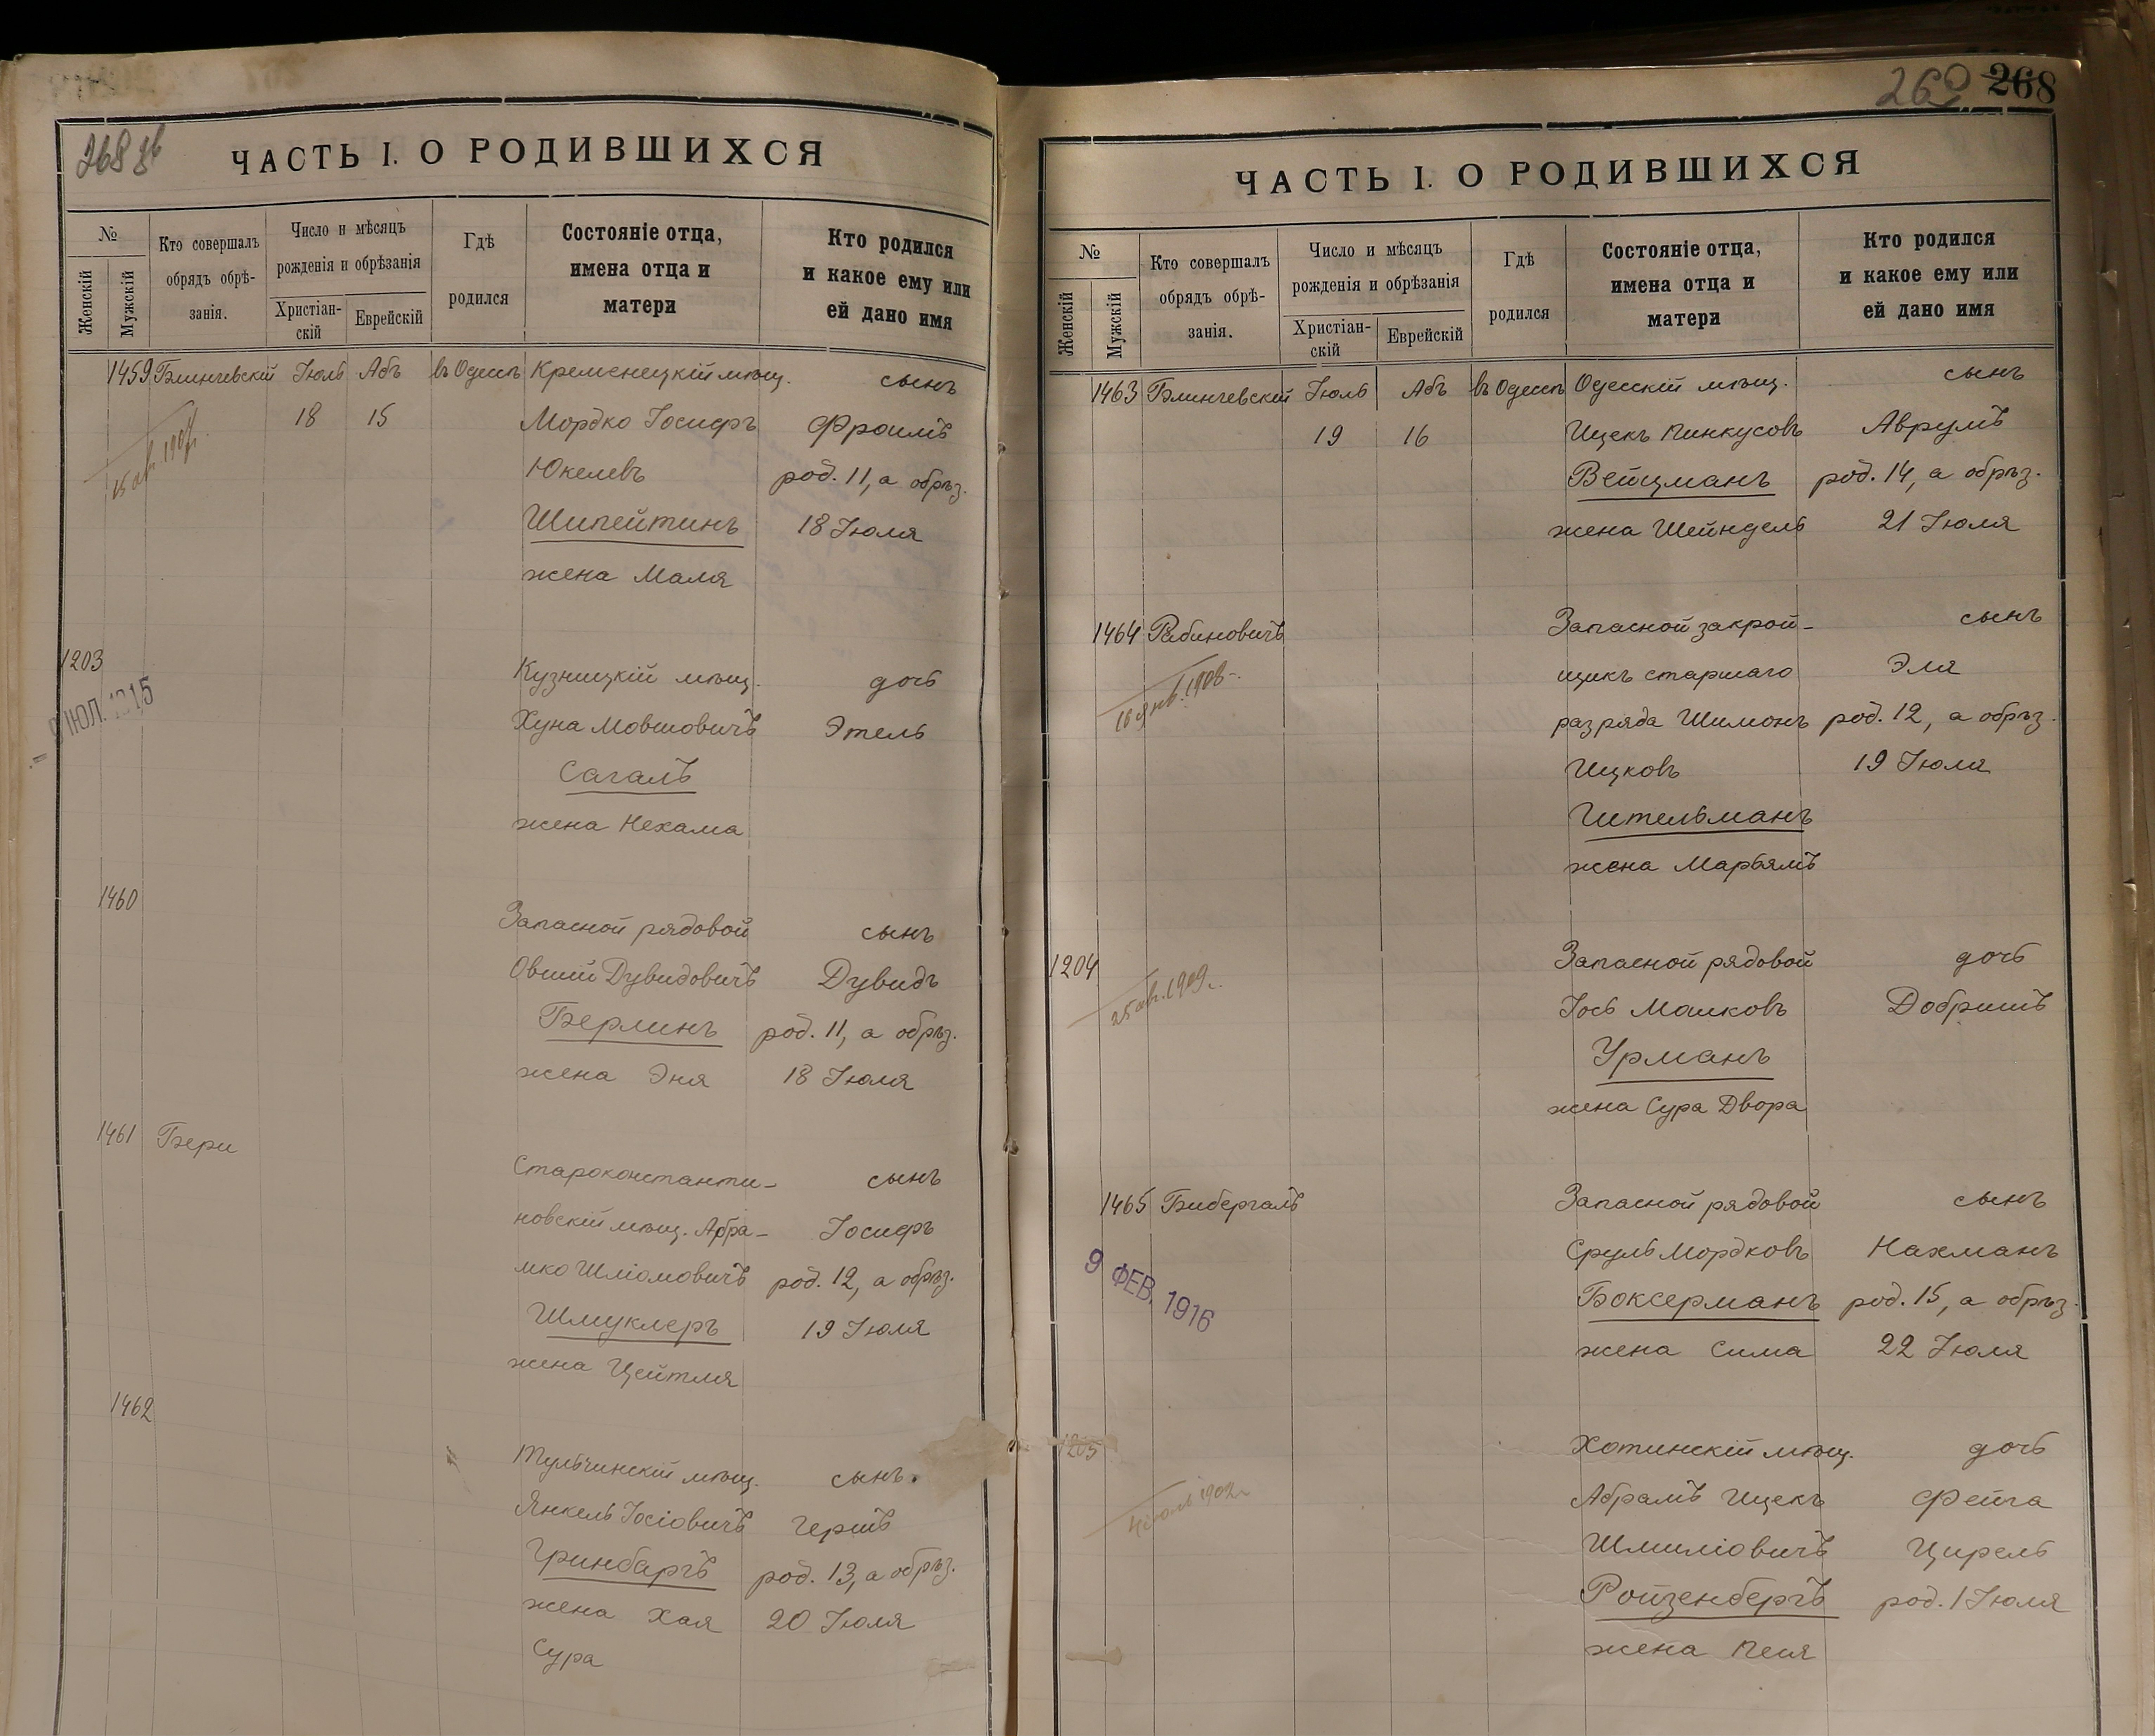 268 зв
ЧАСТЬ I. О РОДИВШИХСЯ
№
Женскій
Мужскій
Кто совершалъ
обрядъ обрѣ-
занія.
Число и мѣсяцъ
рожденія и обрѣзанія
Христіан-
скій
Еврейскій
Гдѣ
родился
Состояніе отца,
имена отца и
матери
Кто родился
и какое ему или
ей дано имя
1459 Блинчевскій Іюль Абъ въ Одессѣ Кременецкій мѣщ. сынъ
18 15 Мордко Іосифъ Фроимъ
Юкелевъ род. 11, а обрѣз.
Шипейтинъ 18 Іюля
жена Маля
1203 Кузницкій мѣщ. дочь
ІЮЛ. 1915
Хуна Мовшовичъ Этель
Сагалъ
жена Нехама
1460
Запасной рядовой сынъ
Овшій Дувидовичъ Дувидъ
Берлинъ род. 11, а обрѣз.
жена Эня 18 Іюля
1461 Бери
Староконстанти- сынъ
новскій мѣщ. Абра- Іосифъ
мко Шліомовичъ род. 12, а обрѣз.
Шмуклеръ 19 Іюля
жена Цейтля
1462
Тульчинскій мѣщ. сынъ.
Янкель Іосіовичъ Гершъ
Гринбаргъ род. 13, а обрѣз.
жена Хая 20 Іюля
Сура
260 268
ЧАСТЬ I. О РОДИВШИХСЯ
№
Женскій
Мужскій
Кто совершалъ
обрядъ обрѣ-
занія.
Число и мѣсяцъ
рожденія и обрѣзанія
Христіан-
скій
Еврейскій
Гдѣ
родился
Состояніе отца,
имена отца и
матери
Кто родился
и какое ему или
ей дано имя
1463 Блинчевскій Іюль Абъ въ Одессѣ Одесскій мѣщ. сынъ
19 16 Ицекъ Пинкусовъ Аврумъ
Вейцманъ род. 14, а обрѣз.
жена Шейндель 21 Іюля
1464 Рабиновичъ Запасной закрой- сынъ
щикъ старшаго Эля
16 янв. 1906
разряда Шимонъ род. 12, а обрѣз.
Ицковъ 19 Іюля
Гительманъ
жена Марьямъ
1204 Запасной рядовой дочь
25 авг. 1909 г.
Іось Машковъ Добришъ
Урманъ
жена Сура Двора
1465 Бибергалъ Запасной рядовой сынъ
Сруль Мордковъ Нахманъ
9 ФЕВ. 1916
Боксерманъ род. 15, а обрѣз.
жена Сима 22 Іюля
1205 Хотинскій мѣщ. дочь
Абрамъ Ицекъ Фейга
Шмиліовичъ Цирель
Ройзенбергъ род. 1 Іюля
жена Песя